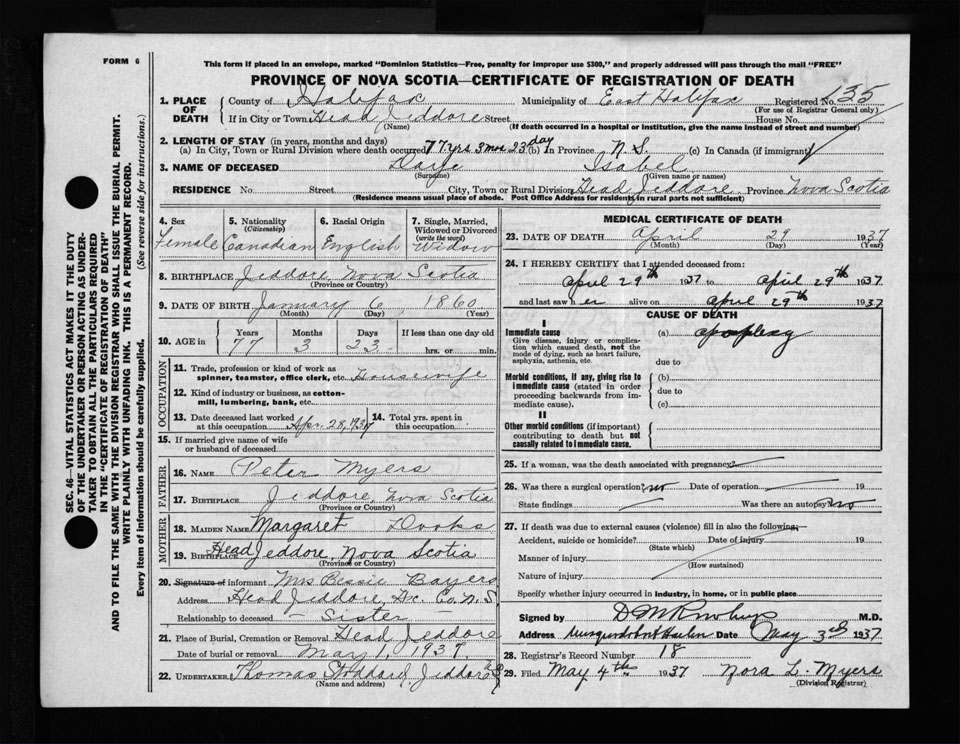 FORM 6
This form if placed in an envelope, marked "Dominion Statistics—Free, penalty for improper use $300," and properly addressed will pass through the mail "FREE"
PROVINCE OF NOVA SCOTIA—CERTIFICATE OF REGISTRATION OF DEATH
SEC. 46—VITAL STATISTICS ACT MAKES IT THE DUTY
OF THE UNDERTAKER OR PERSON ACTING AS UNDER-
TAKER TO OBTAIN ALL THE PARTICULARS REQUIRED
IN THE "CERTIFICATE OF REGISTRATION OF DEATH"
AND TO FILE THE SAME WITH THE DIVISION REGISTRAR WHO SHALL ISSUE THE BURIAL PERMIT.
WRITE PLAINLY WITH UNFADING INK. THIS IS A PERMANENT RECORD.
Every item of information should be carefully supplied. (See reverse side for instructions.)
1. PLACE OF DEATH County of Halifax Municipality of East Halifax Registered No. 35
(For use of Registrar General only)
If in City or Town Head Jeddore Street House No.
(Name) (If death occurred in a hospital or institution, give the name instead of street and number)
2. LENGTH OF STAY (in years, months and days)
(a) In City, Town or Rural Division where death occurred 77 yrs 3 mos 23 day (b) In Province N. S. (c) In Canada (if immigrant)
3. NAME OF DECEASED Daye Isabel
(Surname) (Given name or names)
RESIDENCE No. Street City, Town or Rural Division Head Jeddore Province Nova Scotia
(Residence means usual place of abode. Post Office Address for residents in rural parts not sufficient)
4. Sex 5. Nationality 6. Racial Origin 7. Single, Married,
(Citizenship) Widowed or Divorced
(write the word)
Female Canadian English Widow
8. BIRTHPLACE Jeddore Nova Scotia
(Province or Country)
9. DATE OF BIRTH January 6 1860
(Month) (Day) (Year)
10. AGE in Years Months Days If less than one day old
77 3 23 hrs. or min.
OCCUPATION
11. Trade, profession or kind of work as
spinner, teamster, office clerk, etc. Housewife
12. Kind of industry or business, as cotton-
mill, lumbering, bank, etc.
13. Date deceased last worked 14. Total yrs. spent in
at this occupation Apr. 28, 1937 this occupation
15. If married give name of wife
or husband of deceased
FATHER
16. NAME Peter Myers
17. BIRTHPLACE Jeddore, Nova Scotia
(Province or Country)
MOTHER
18. MAIDEN NAME Margaret Dooks
19. BIRTHPLACE Head Jeddore, Nova Scotia
(Province or Country)
20. Signature of informant Mrs Bessie Bayers
Address Head Jeddore Hx. Co. N. S
Relationship to deceased Sister
21. Place of Burial, Cremation or Removal Head Jeddore
Date of burial or removal May 1, 1937.
22. UNDERTAKER Thomas Stoddard, Jeddore
(Name and address)
MEDICAL CERTIFICATE OF DEATH
23. DATE OF DEATH April 29 1937
(Month) (Day) (Year)
24. I HEREBY CERTIFY that I attended deceased from:
April 29th 1937 to April 29th 1937
and last saw her alive on April 29th 1937
CAUSE OF DEATH
I
Immediate cause (a) apoplexy
Give disease, injury or complica-
tion which caused death, not the
mode of dying, such as heart failure,
asphyxia, asthenia, etc. due to
Morbid conditions, if any, giving rise to (b)
immediate cause (stated in order due to
proceeding backwards from im-
mediate cause). (c)
II
Other morbid conditions (if important)
contributing to death but not
causally related to immediate cause.
25. If a woman, was the death associated with pregnancy?
26. Was there a surgical operation? no Date of operation 19
State findings Was there an autopsy? no
27. If death was due to external causes (violence) fill in also the following:
Accident, suicide or homicide? Date of injury 19
(State which)
Manner of injury
(How sustained)
Nature of injury
Specify whether injury occurred in industry, in home, or in public place
Signed by M.D.
Address Musquodoboit Harbor Date May 3rd 1937
28. Registrar's Record Number 18
29. Filed May 4th 1937 Nora L. Myers
(Division Registrar)